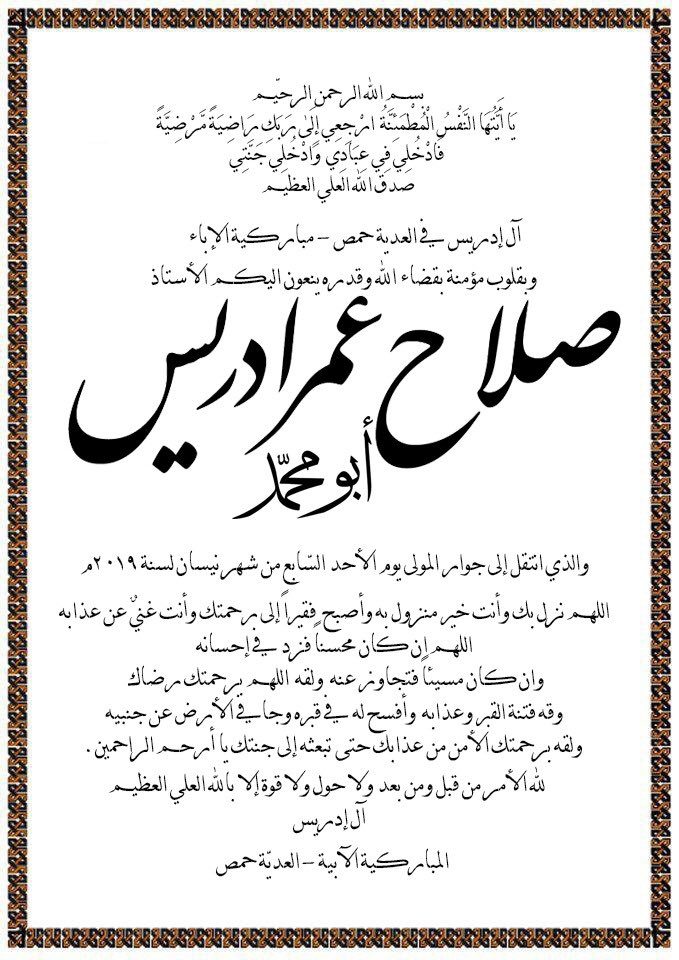 بسم الله الرحمن الرحيّم
يَا أَيَّتُهَا النَّفْسُ الْمُطْمَئِنَّةُ ارْجِعِي إِلَىٰ رَبِّكِ رَاضِيَةً مَّرْضِيَّةً
فَادْخُلِي فِي عِبَادِي وَادْخُلِي جَنَّتِي
صدق الله العلي العظيم
آل إدريس في العدية حمص – مباركية الإباء
وبقلوب مؤمنة بقضاء الله وقدره ينعون اليكم الأستاذ
صلاح عمر ادريس
أبو محمّد
والذي انتقل إلى جوار المولى يوم الأحد السّابع من شهر نيسان لسنة ٢٠١٩م
اللهم نزل بك وأنت خير منزول به وأصبح فقيراً إلى رحمتك وأنت غنيٌ عن عذابه
اللهم إن كان محسناً فزد في إحسانه
وان كان مسيئاً فتجاوز عنه ولقه اللهم برحمتك رضاك
وقه فتنة القبر وعذابه وأفسح له في قبره وجافي الأرض عن جنبيه
ولقه برحمتك الأمن من عذابك حتى تبعثه إلى جنتك يا أرحم الراحمين .
لله الأمر من قبل ومن بعد ولا حول ولا قوة إلا بالله العلي العظيم
آل إدريس
المباركية الآبية – العديّة حمص